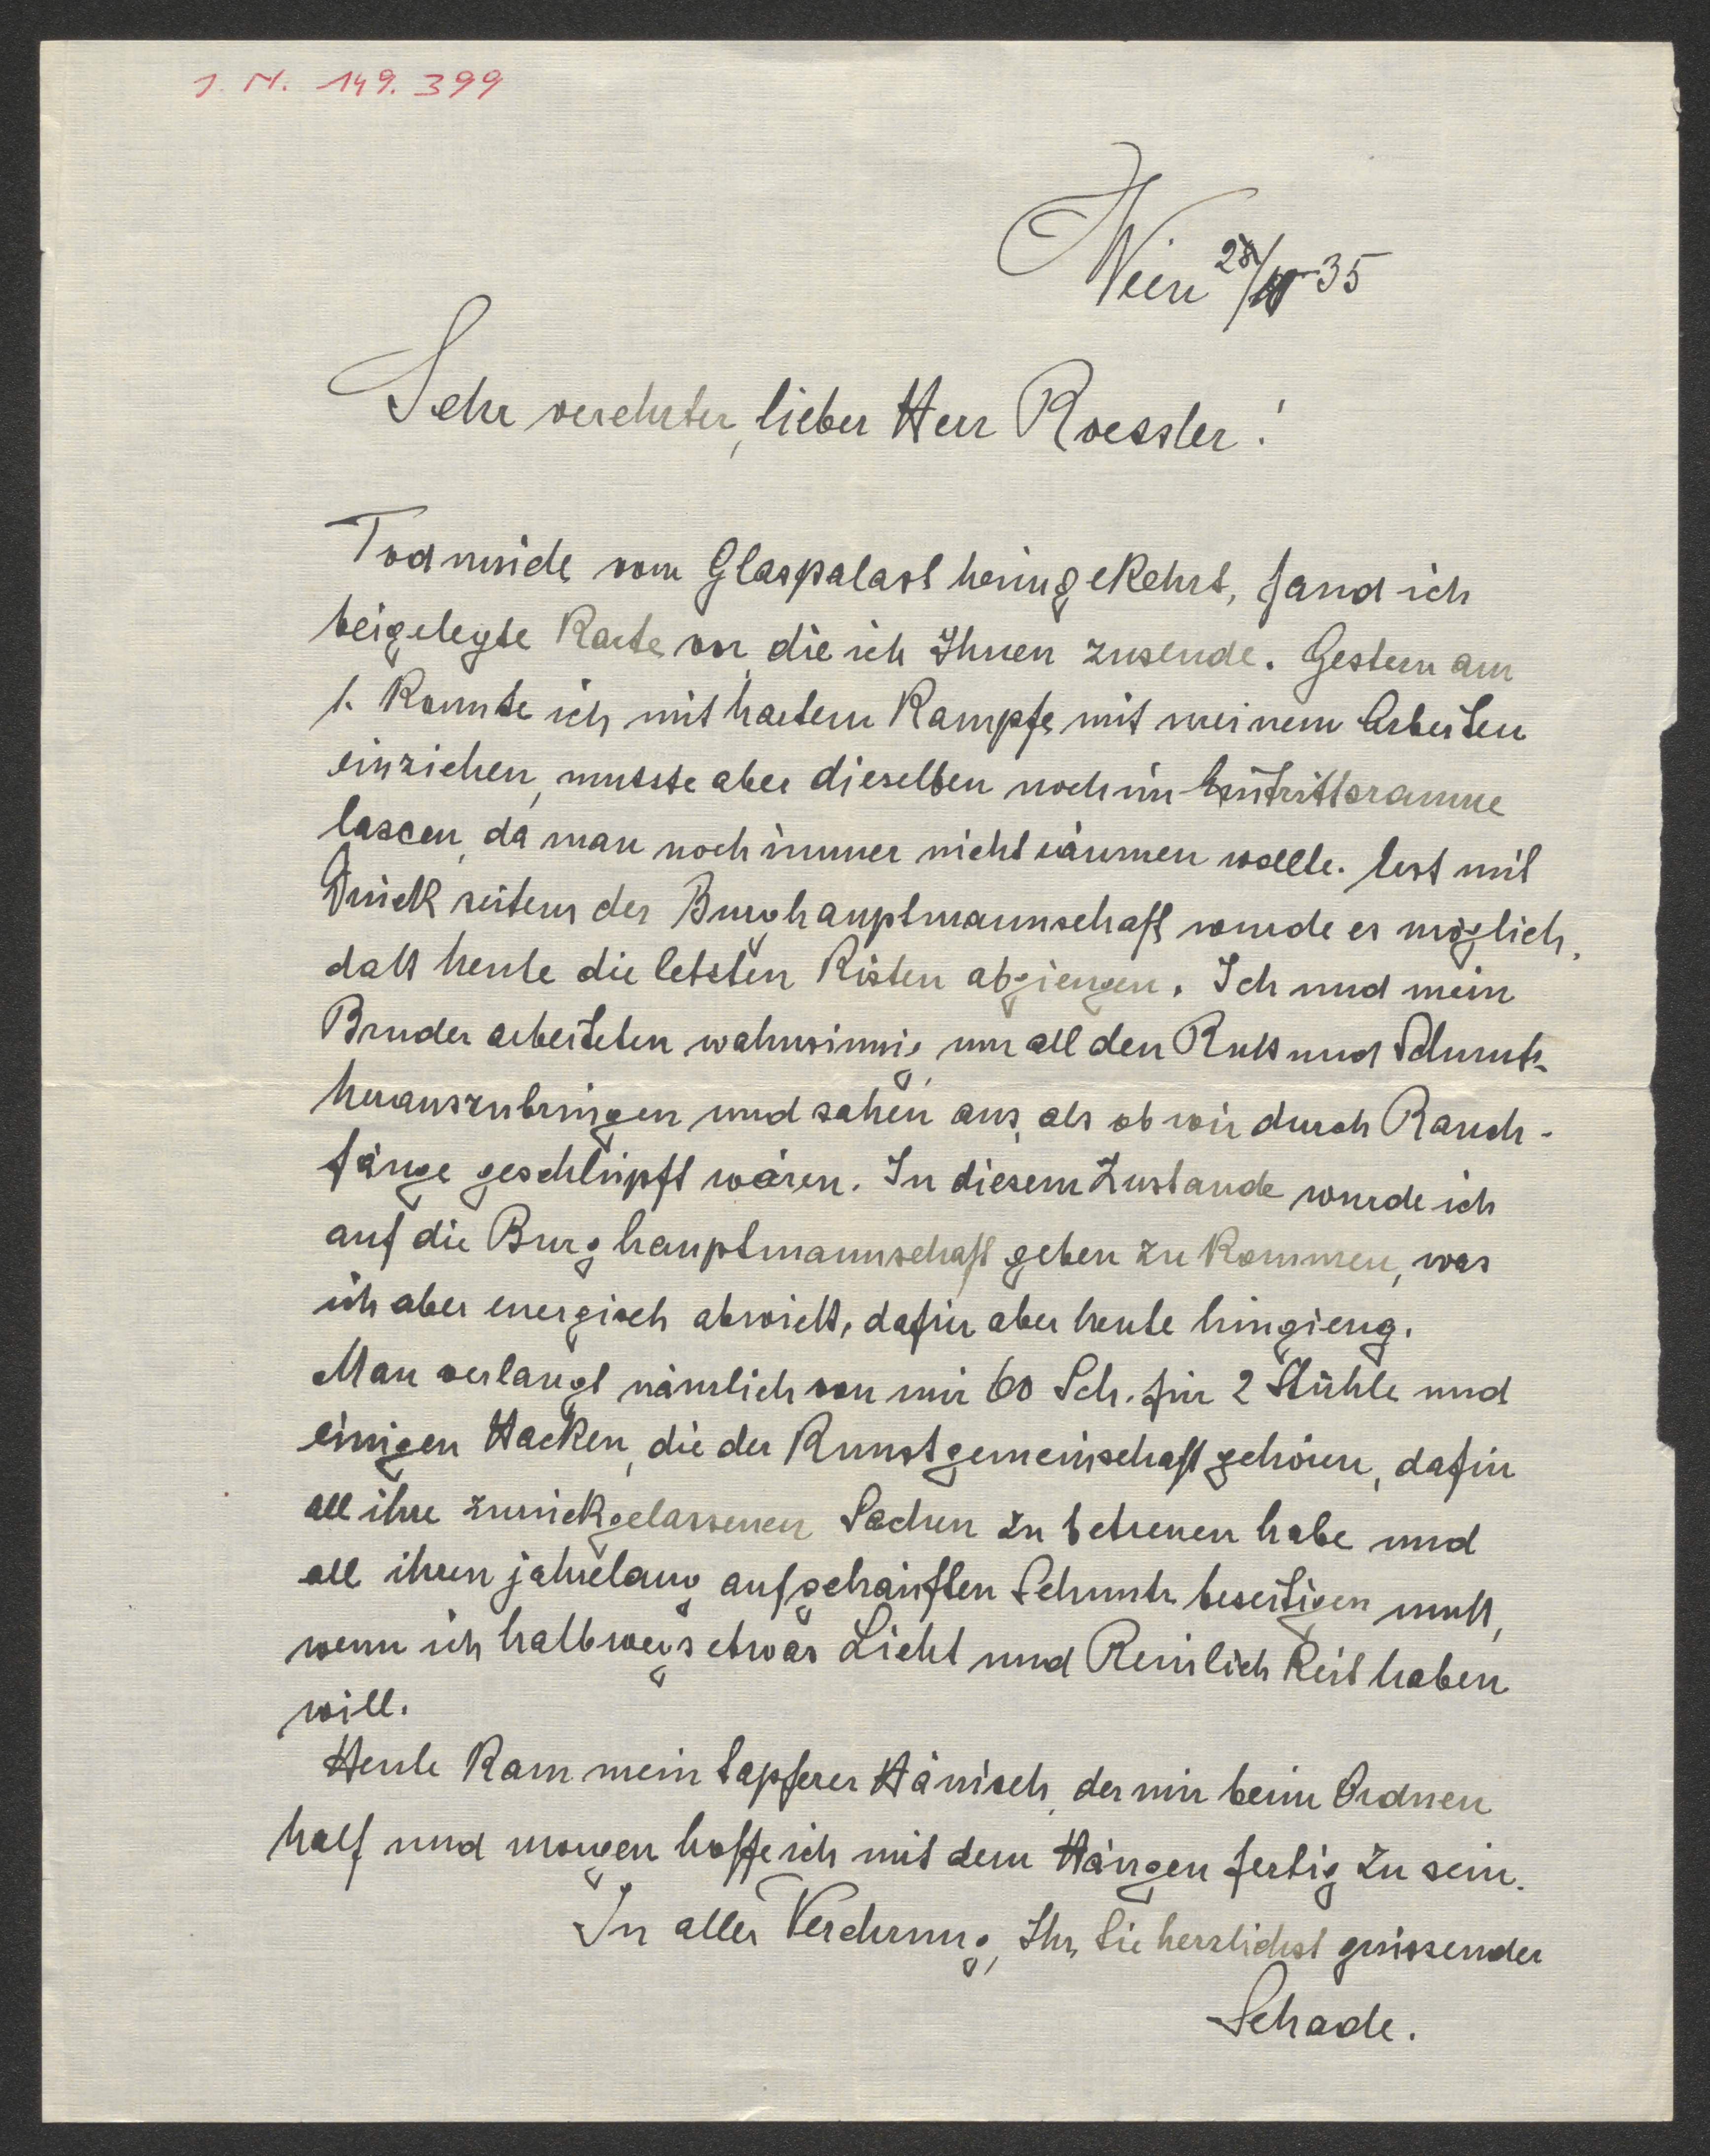 J. N. 149.399
Wien 28/ 35
Sehr verehrter, lieber Herr Roessler!
Todmüde vom Glaspalast heimgekehrt, fand ich
beigelegte Karte vor, die ich Ihnen zusende. Gestern am
1. konnte ich mit hartem Kampfe mit meinem Arbeiten
einziehen, musste aber dieselben noch im Eintrittsraume
lassen, da man noch immer nicht räumen wollte. Erst mit
Druck seitens der Burghauptmannschaft wurde es möglich,
daß heute die letzten Kisten abgiengen. Ich und mein
Bruder arbeiteten wahnsinnig, um all den Ruß und Schmutz
herauszubringen und sahen aus, als ob wir durch Rauch-
fänge geschlüpft wären. In diesem Zustande wurde ich
auf die Burghauptmannschaft geben zu kommen, was
ich aber energisch abwieß, dafür aber heute hingieng.
Man verlangt nämlich von mir 60 Sch. für 2 Stühle und
einigen Hacken, die der Kunstgemeinschaft gehören, dafür
all ihre zurückgelassenen Sachen zu betreuen habe und
all ihren jahrelang aufgehäuften Schmutz beseitigen muß,
wenn ich halbwegs etwas Licht und Reinlichkeit haben
will.
Heute kam mein tapferer Hänisch, der mir beim Ordnen
half und morgen hoffe ich mit dem Hängen fertig zu sein.
In aller Verehrung, Ihr, Sie herzlichst grüssender
Schade.